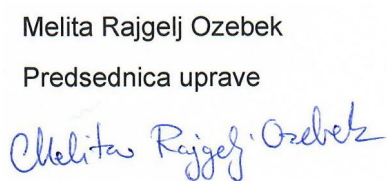 Melita Rajgelj Ozebek
Predsednica uprave
Melita Rajgelj Ozebek